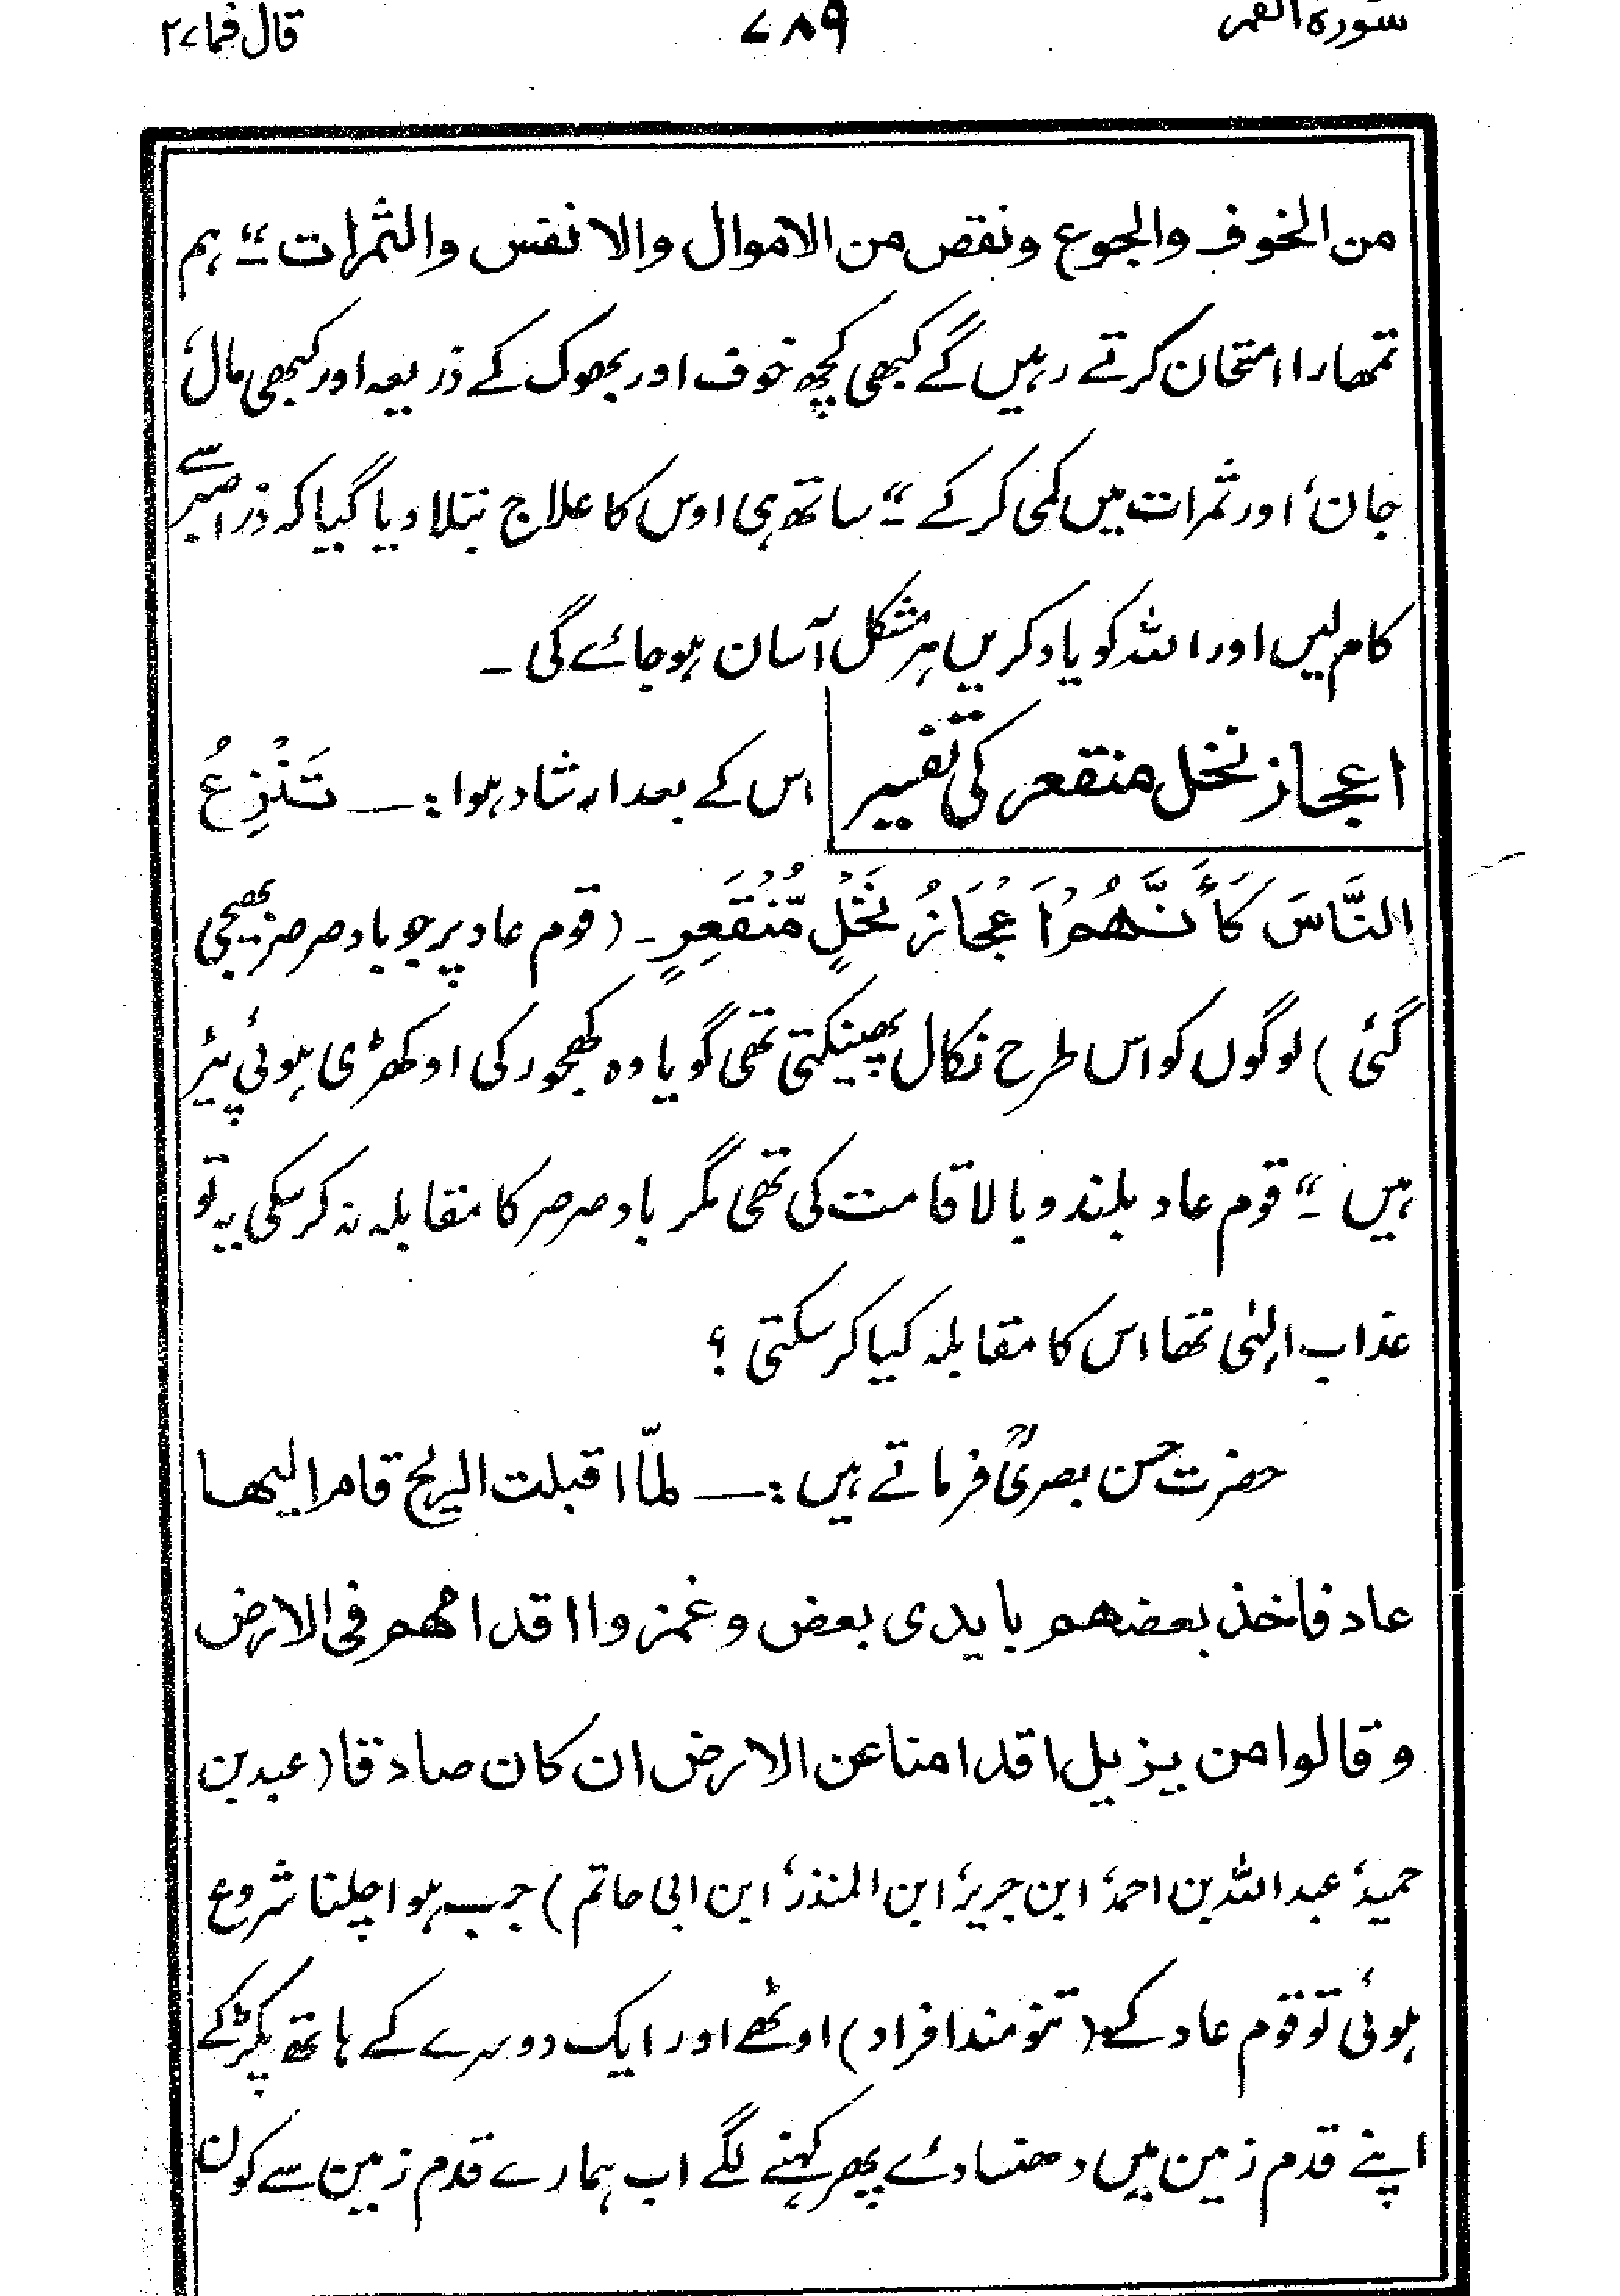 سورہ القمر ۷۸۹ قال فما ۲۷
من الخوف والجوع ونقص من الاموال والانفس والثمرات ”۔ ہم
تمھارا امتحان کرتے رہیں گے کبھی کچھ خوف اور بھوک کے ذریعہ اور کبھی مال،
جان، اور ثمرات میں کمی کرکے ”۔ ساتھ ہی اوس کا علاج بتلا دیا گیا کہ ذرا صبر سے
کام لیں اور اللہ کو یاد کریں ہر مشکل آسان ہو جائے گی ۔
اعجاز نخل منقعر کی تفسیر اس کے بعد ارشاد ہوا :ــ تَنْزِعُ
النَّاسَ كَأَنَّهُمْ اَعْجَازُ نَخْلٍ مُّنْقَعِرٍ ۔ (قوم عاد پر جو باد صرصر بھیجی
گئی) لوگوں کو اس طرح نکال پھینکتی تھی گویا وہ کھجور کی اوکھڑی ہوئی پیڑ
ہیں ”۔ قوم عاد بلند و بالا قامت کی تھی مگر باد صرصر کا مقابلہ نہ کرسکی یہ تو
عذاب الہٰی تھا اس کا مقابلہ کیا کرسکتی ؟
حضرت حسن بصریؒ فرماتے ہیں :ــ لمّا اقبلت الریح قام الیھا
عاد فاخذ بعضھم بایدی بعض وغمزوا اقدامھم فی الارض
وقالوا من یزیل اقدامنا عن الارض ان کان صادقا (عبد بن
حمید، عبد اللہ بن احمد، ابن جریر، ابن المنذر، ابن ابی حاتم) جب ہوا چلنا شروع
ہوئی تو قوم عاد کے (تنومند افراد) اوٹھے اور ایک دوسرے کے ہاتھ پکڑ کے
اپنے قدم زمین میں دھنسا دئے پھر کہنے لگے اب ہمارے قدم زمین سے کون